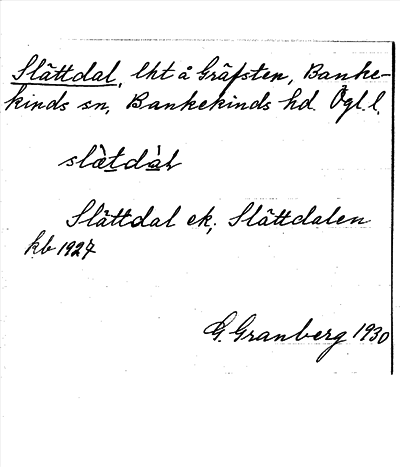 Slättdal, lht å Gräfsten, Banke-
kinds sn, Bankekinds hd. Ögl.l.
slàtdàl
Slättdal ek; Slättdalen
kb 1927
G. Granberg 1930